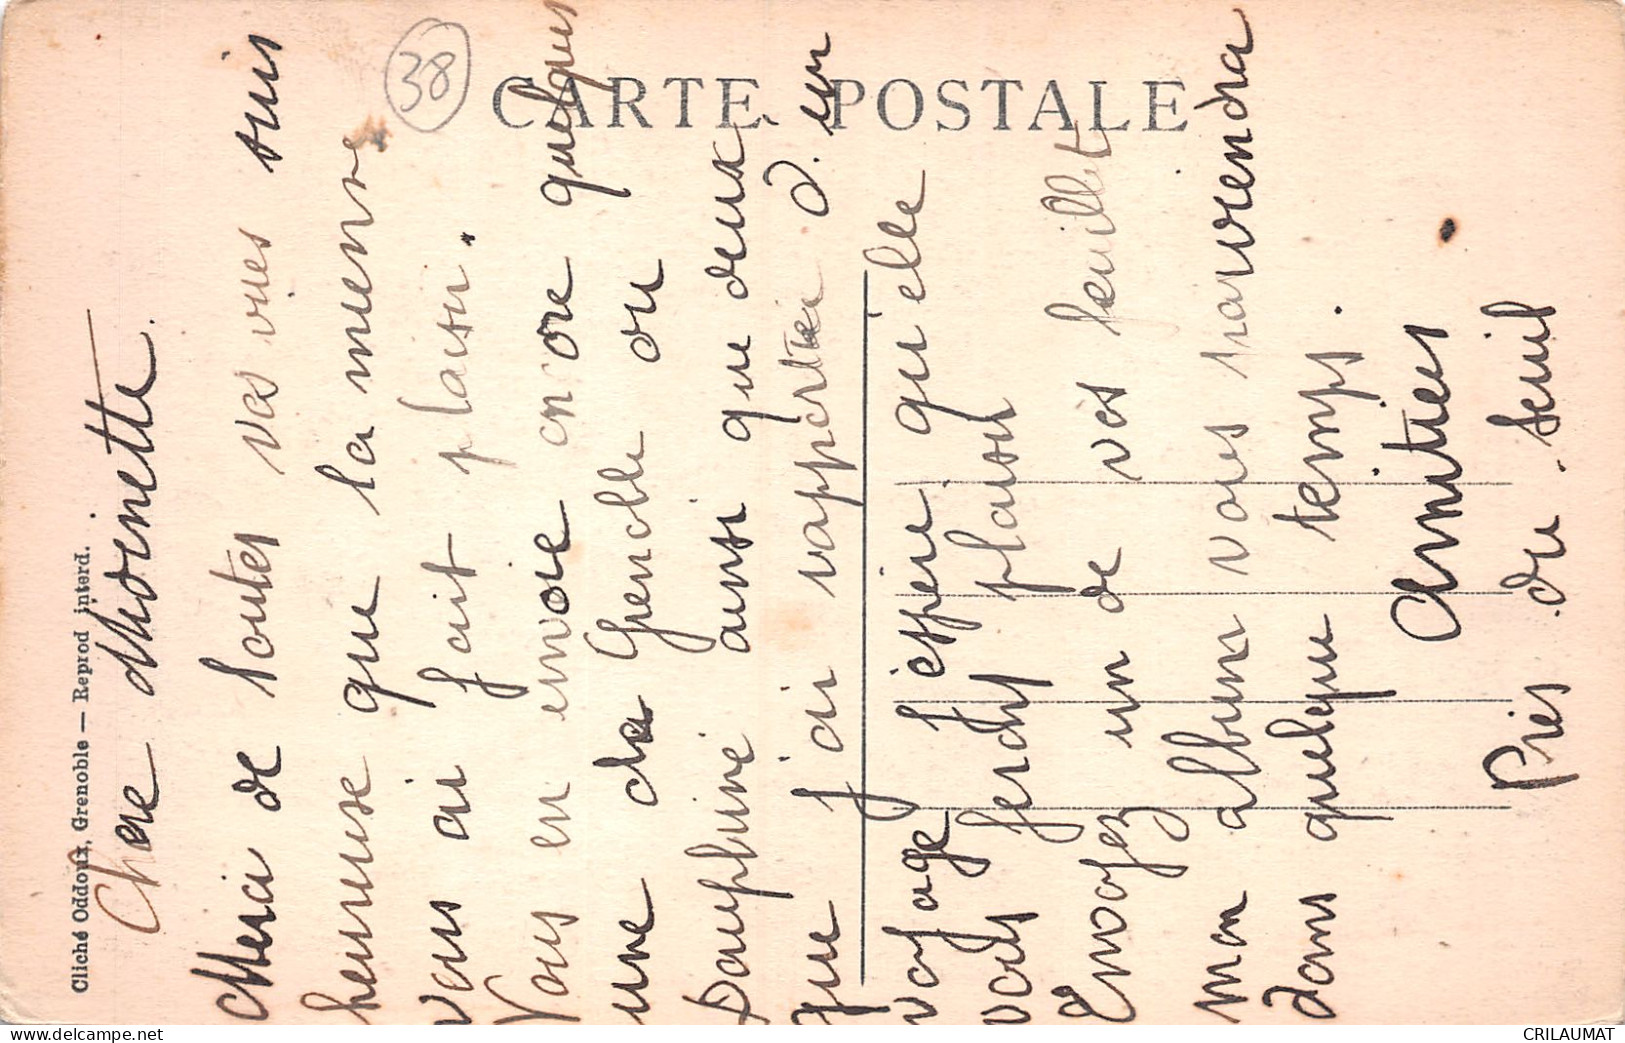 CARTE POSTALE
38
Cliché Oddoux, Grenoble — Reprod interd.
Chere Moinette.
Merci de toutes vos vues suis
heureuse que la mienne
vous ai fait plaisir.
Vous en envoie encore quelques
une de Grenoble ou du
Dauphiné ainsi que deux
que j'ai rapportée d'un
voyage j'espère qu'elle
vous ferons plaisir
Envoyez un de vos feuillet
mon album vous parviendra
dans quelque temps.
Amities
Pres du Seuil
CRILAUMAT